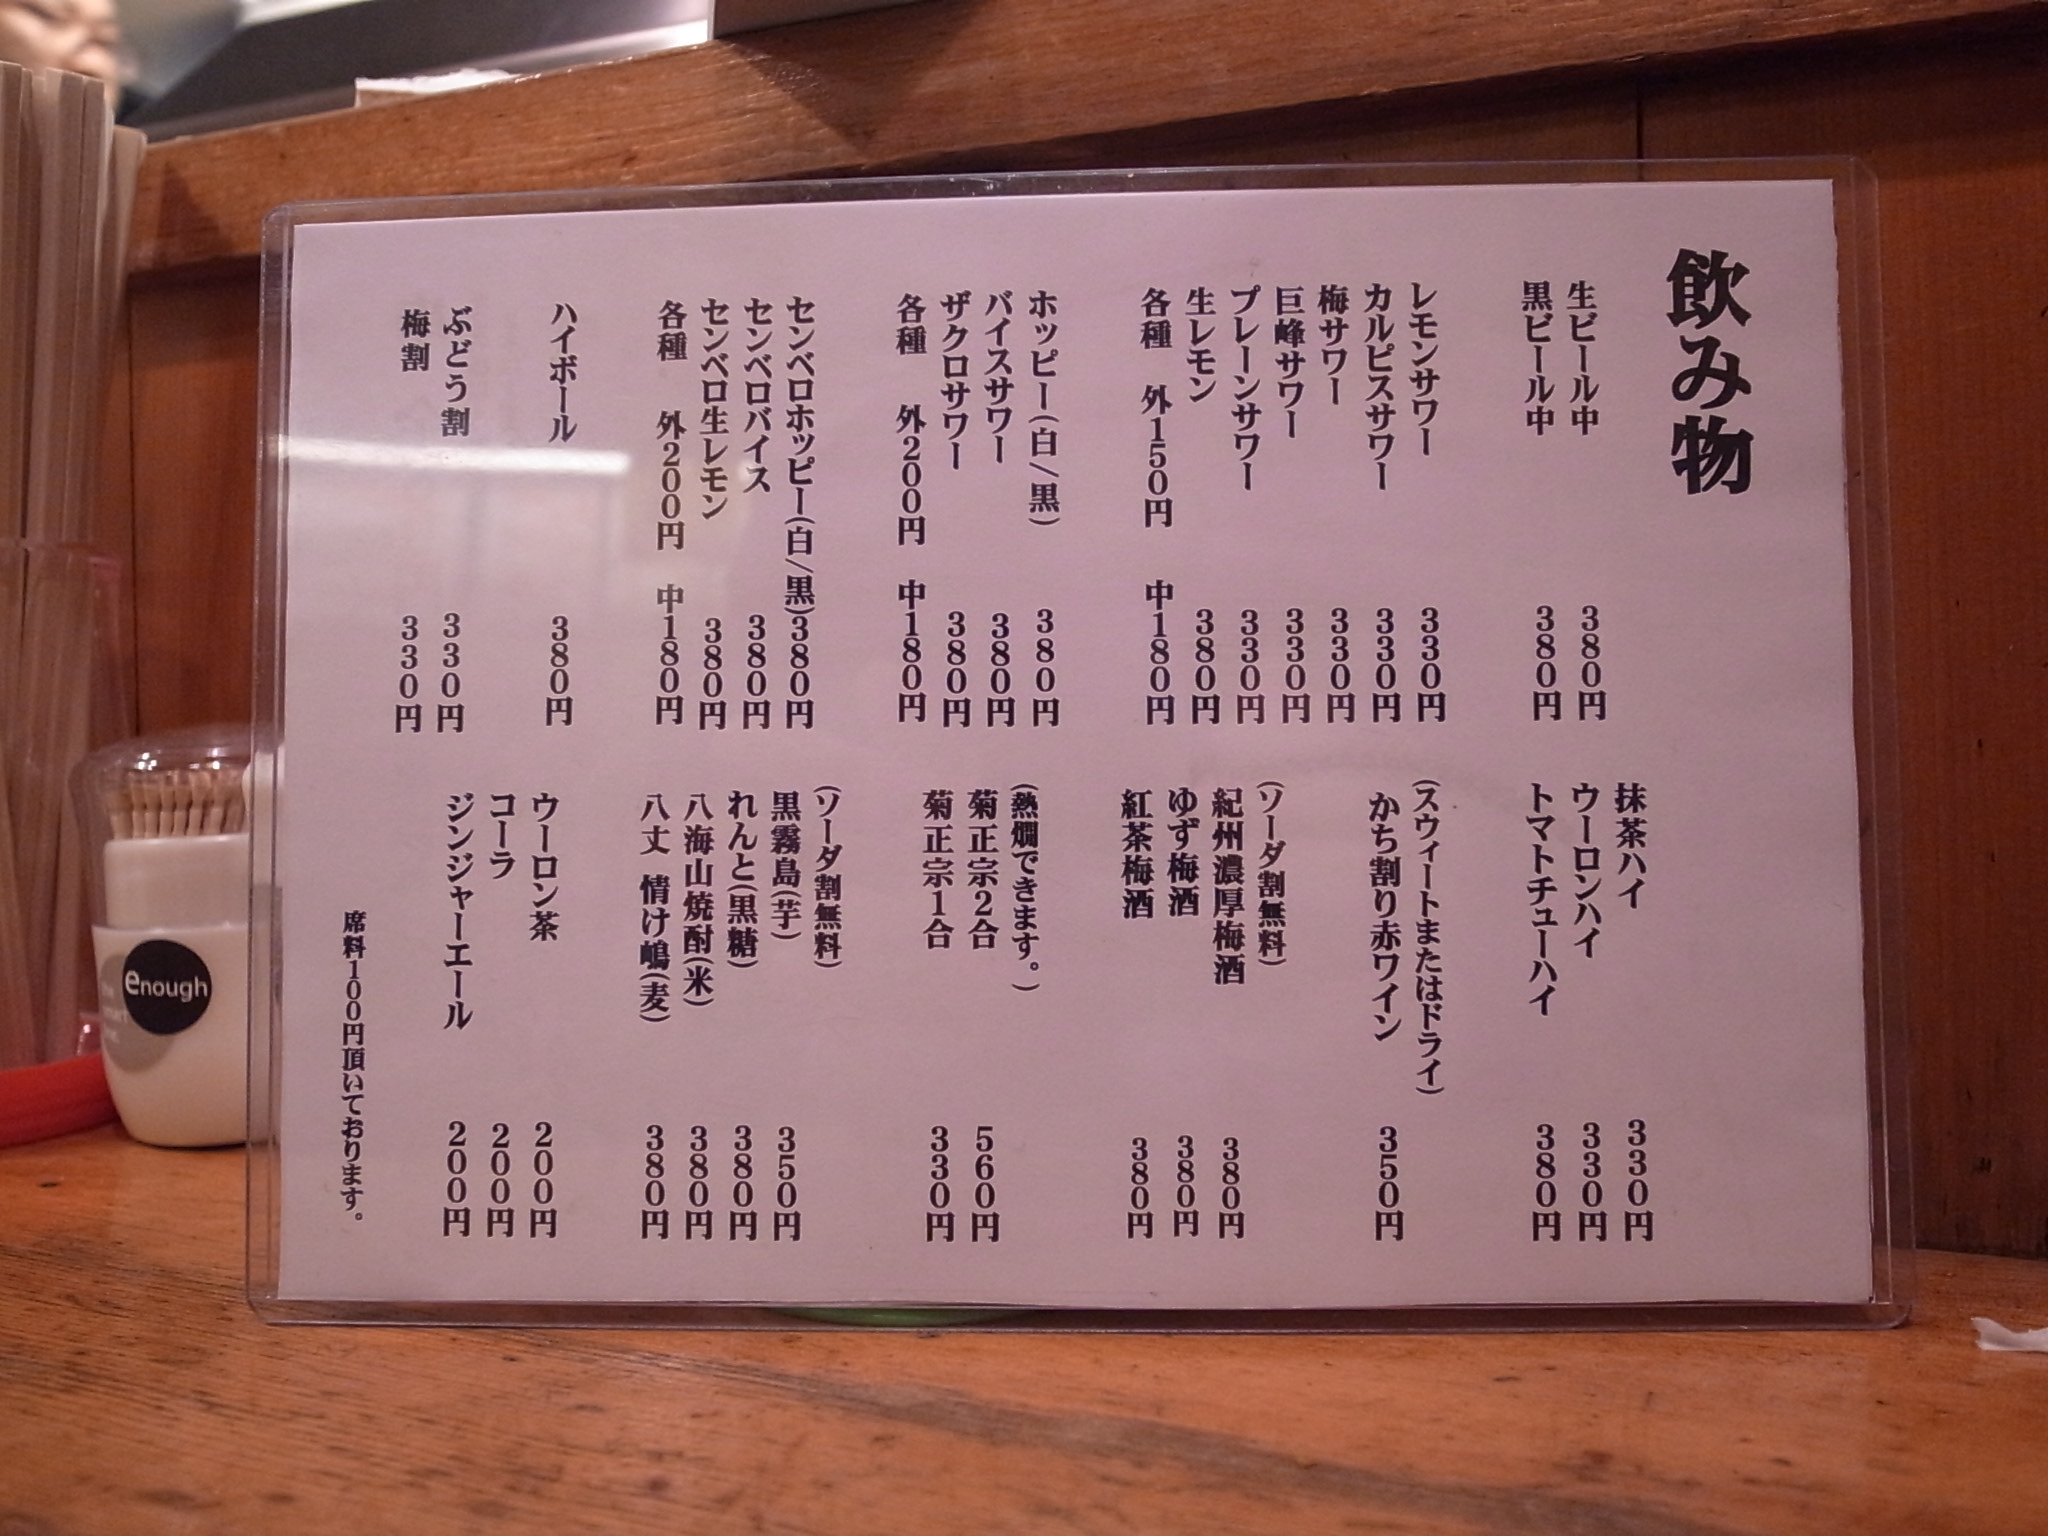 飲み物
生ビール中 380円
黒ビール中 380円
レモンサワー 330円
カルピスサワー 330円
梅サワー 330円
巨峰サワー 330円
プレーンサワー 330円
生レモン 380円
各種 外150円 中180円
ホッピー(白/黒) 380円
バイスサワー 380円
ザクロサワー 380円
各種 外200円 中180円
センベロホッピー(白/黒)380円
センベロバイス 380円
センベロ生レモン 380円
各種 外200円 中180円
ハイボール 380円
ぶどう割 330円
梅割 330円
抹茶ハイ 330円
ウーロンハイ 330円
トマトチューハイ 380円
(スウィートまたはドライ)
かち割り赤ワイン 350円
(ソーダ割無料)
紀州濃厚梅酒 380円
ゆず梅酒 380円
紅茶梅酒 380円
(熱燗できます。)
菊正宗2合 560円
菊正宗1合 330円
(ソーダ割無料)
黒霧島(芋) 350円
れんと(黒糖) 380円
八海山焼酎(米) 380円
八丈 情け嶋(麦) 380円
ウーロン茶 200円
コーラ 200円
ジンジャーエール 200円
席料100円頂いております。
enough